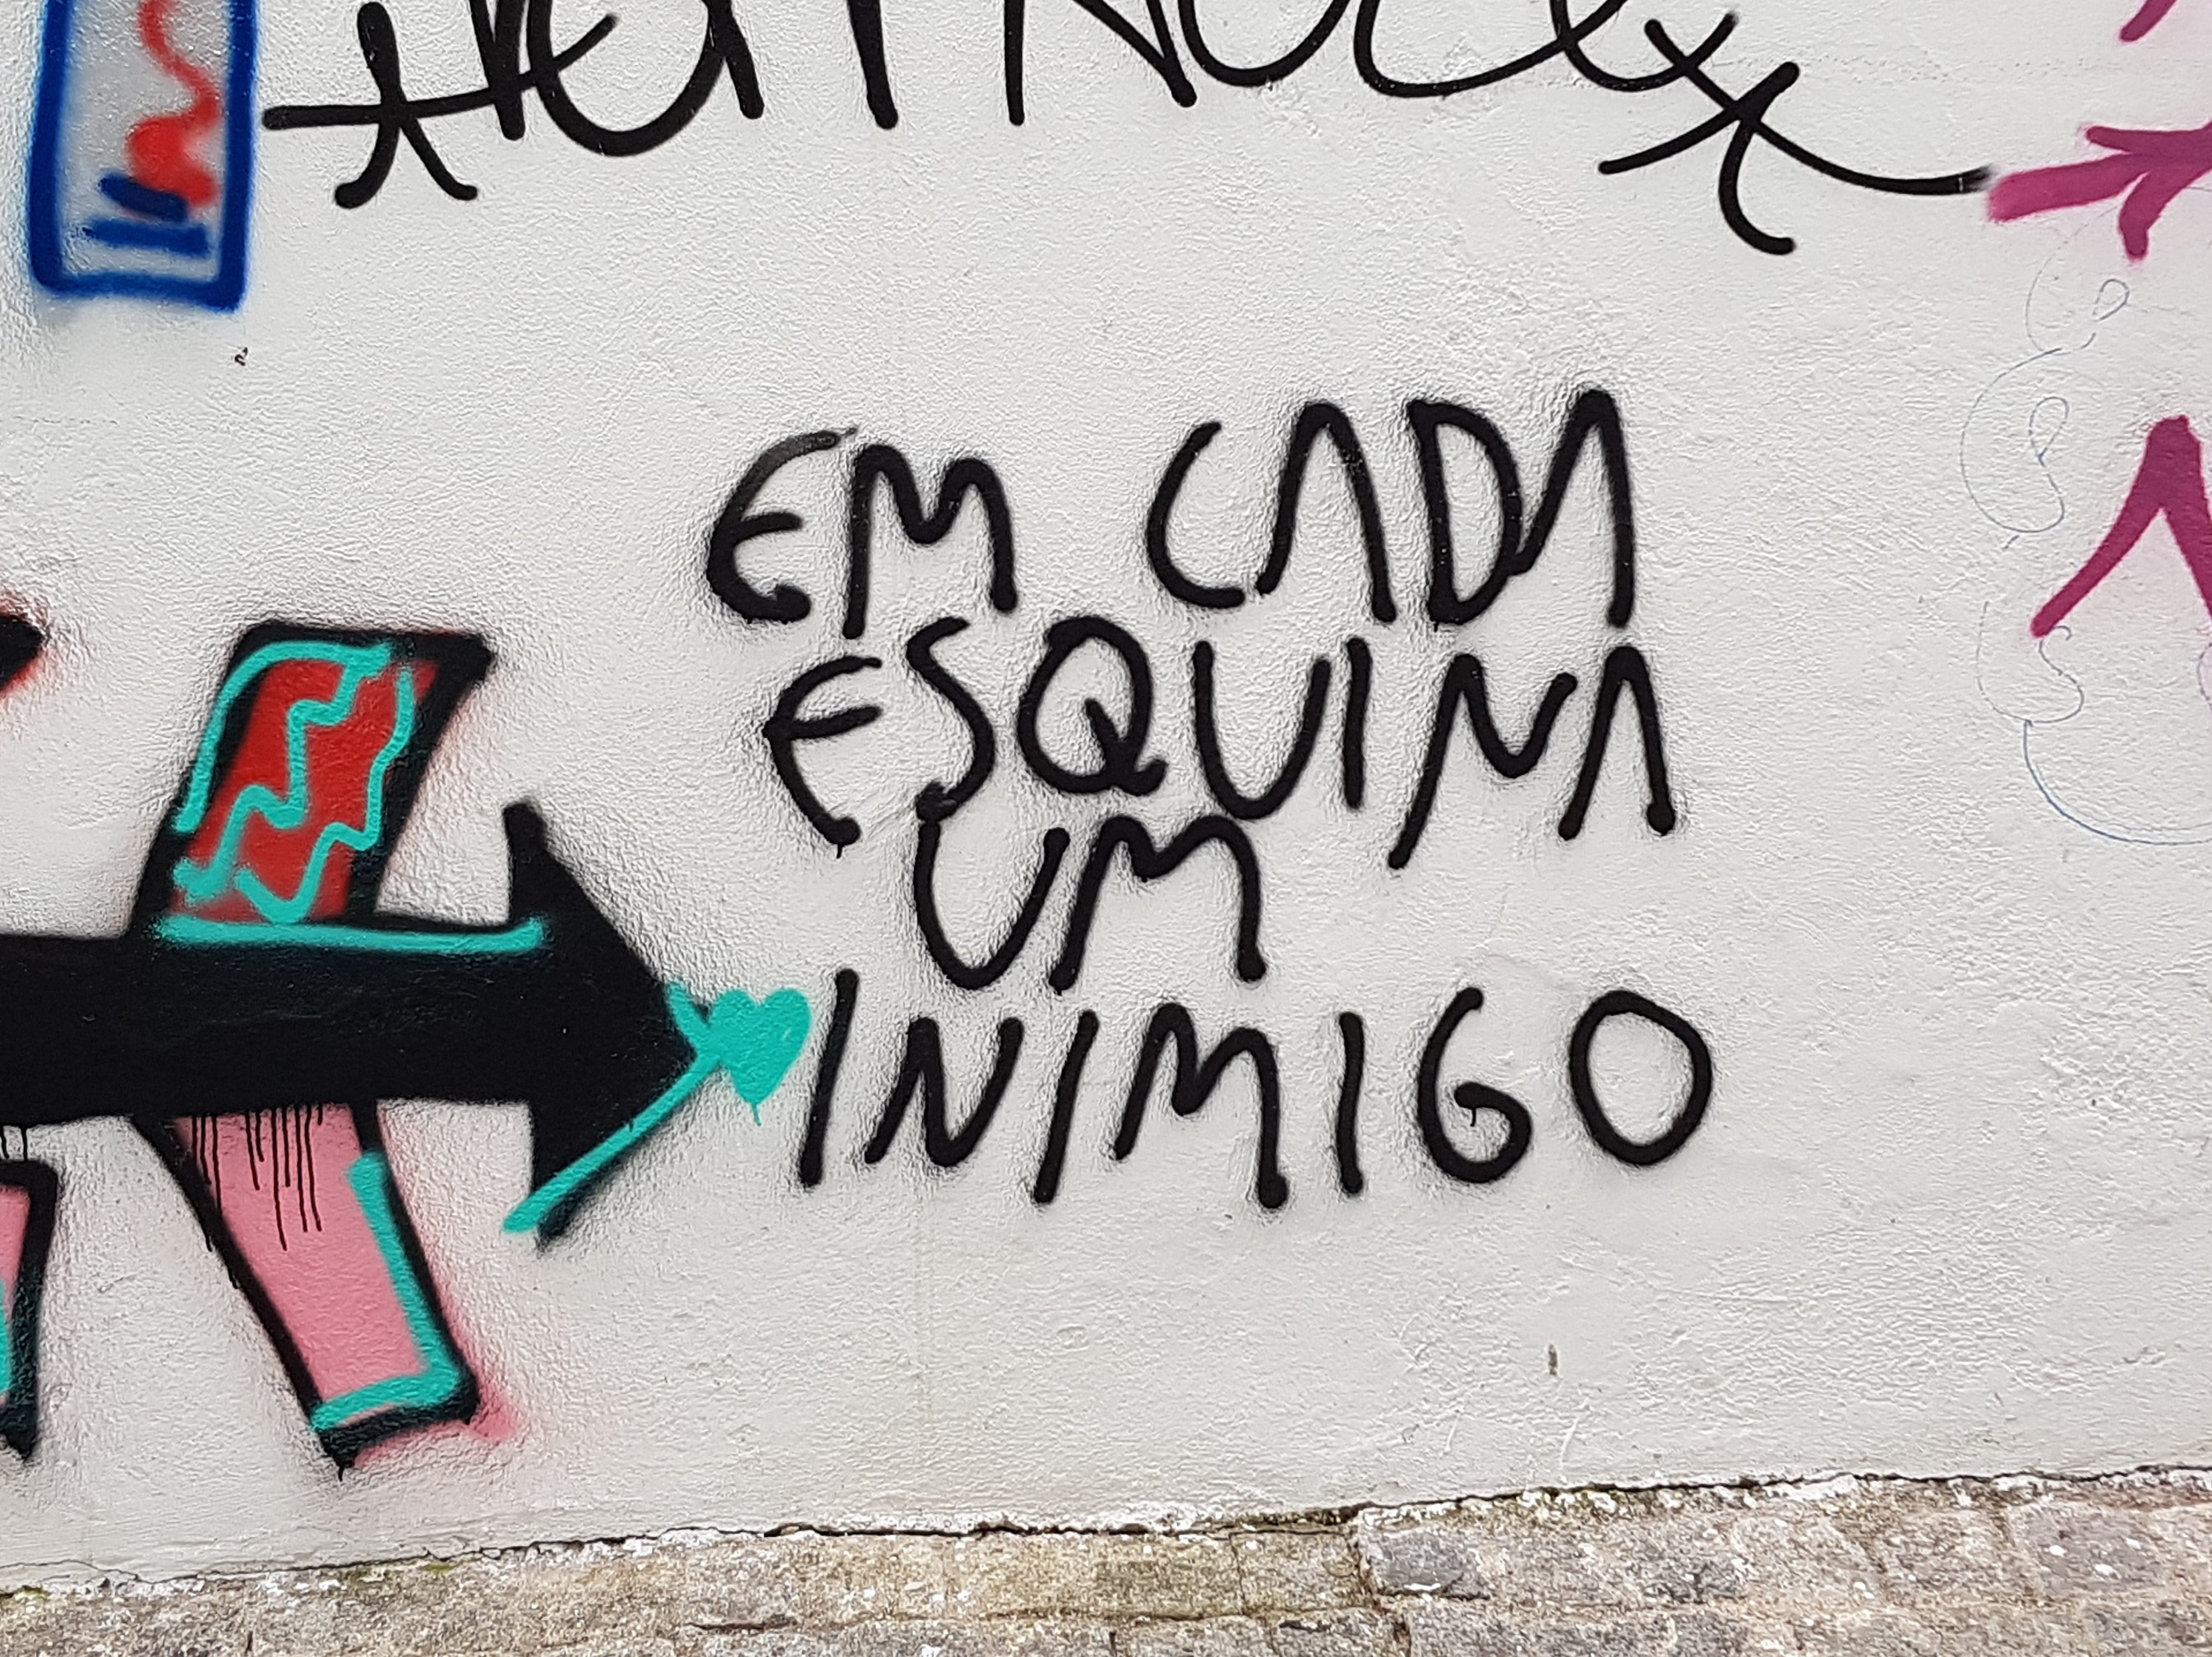 EM CADA
ESQUINA
UM
INIMIGO